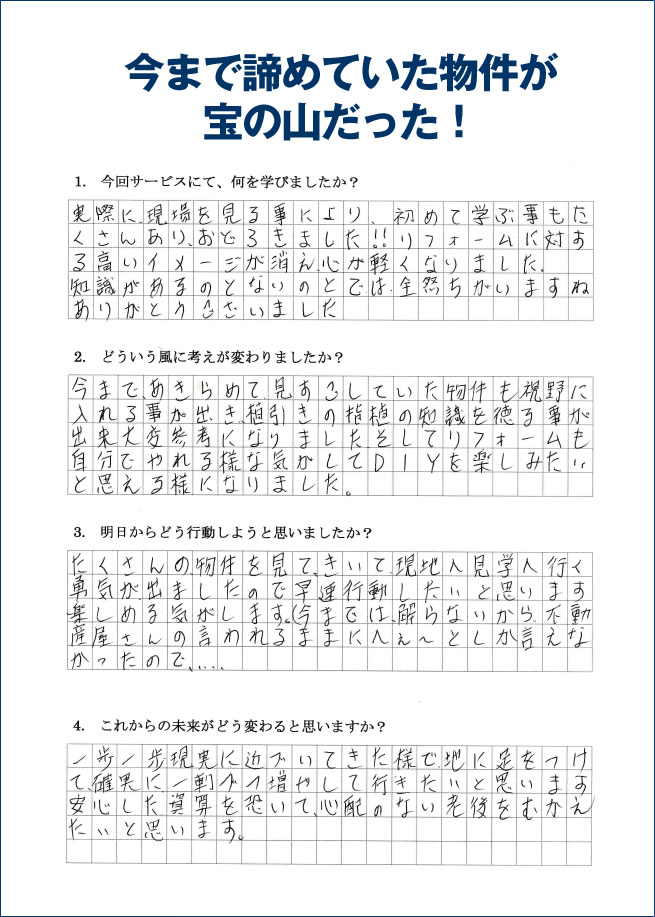 今まで諦めていた物件が
宝の山だった！
1. 今回サービスにて、何を学びましたか？
実際に、現場を見る事により、初めて学ぶ事もた
くさんあり、おどろきました!!リフォームに対す
る高いイメージが消え、心が軽くなりました。
知識があるのとないのとでは、全然ちがいますね
ありがとうございました
2. どういう風に考えが変わりましたか？
今まで、あきらめて、見すごしていた物件も視野に
入れる事が出き、値引きの指値の知識を徳る事が
出来大変参考になりましたそしてリフォームも
自分でやれる様な気がしてDIYを楽しみたい
と思える様になりました。
3. 明日からどう行動しようと思いましたか？
たくさんの、物件を見て、きいて、現地へ見学へ行く
勇気が出ましたので早速行動したいと思います
楽しめる気がします。(今までは、解らないから、不動
産屋さんの言われるままにへぇ～としか言えな
かったので、....
4. これからの未来がどう変わると思いますか？
一歩一歩現実に近づいてきた様で地に足をつけ
て、確実に一軒づつ増やして行きたいと思います
安心した資算を恐いて、心配のない老後をむかえ
たいと思います。